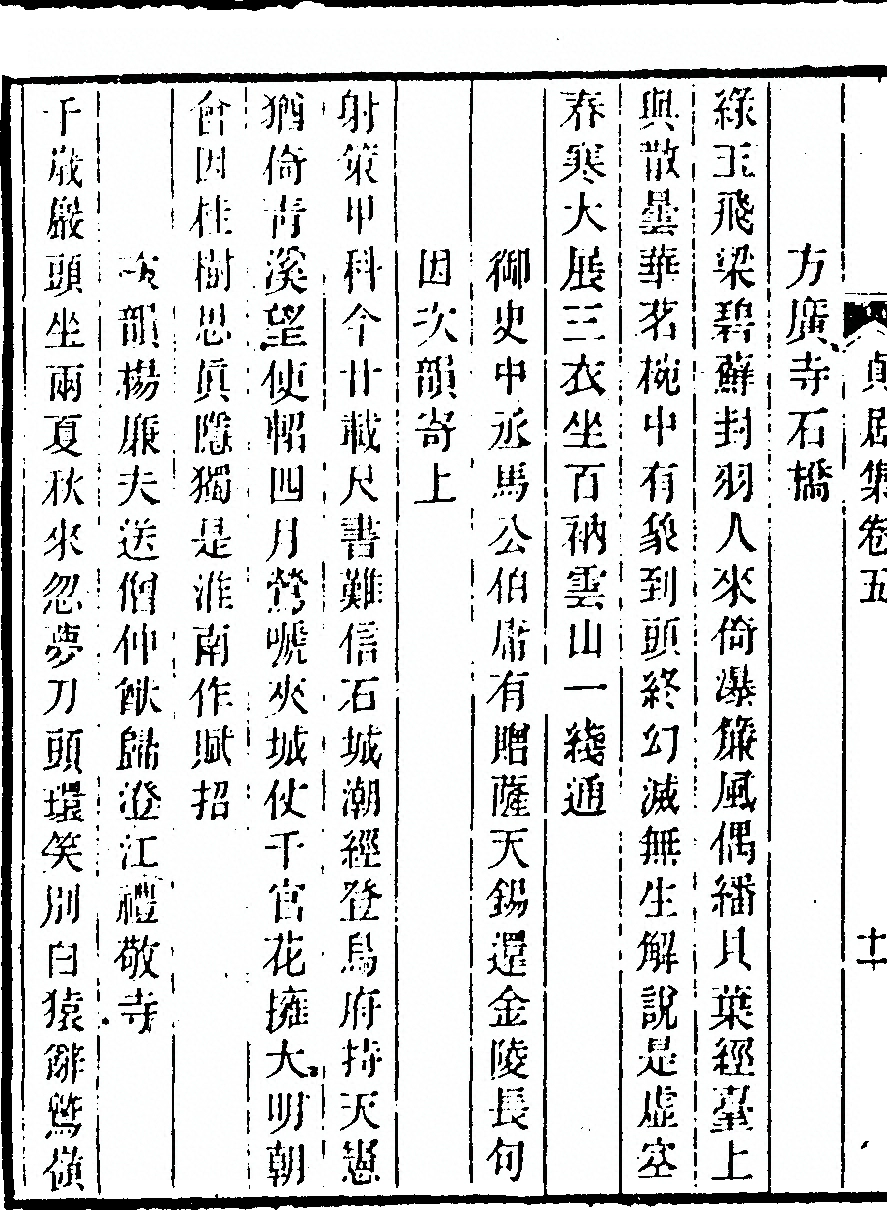 貞居集卷五
十一
方廣寺石橋
綠玉飛梁碧蘚封羽人來倚瀑簾風偶繙貝葉經臺上
與散曇華茗椀中有象到頭終幻滅無生解說是虛空
春寒大展三衣坐百衲雲山一綫通
御史中丞馬公伯庸有贈薩天錫還金陵長句
因次韻寄上
射策甲科今廿載尺書難信石城潮經登烏府持天憲
猶倚青溪望使軺四月鶯嗁夾城仗千官花擁大明朝
會因桂樹思眞隱獨是淮南作賦招
次韻楊廉夫送僧仲猷歸澄江禮敬寺
千歲巖頭坐兩夏秋來忽夢刀頭環笑別白猿辭鷲嶺